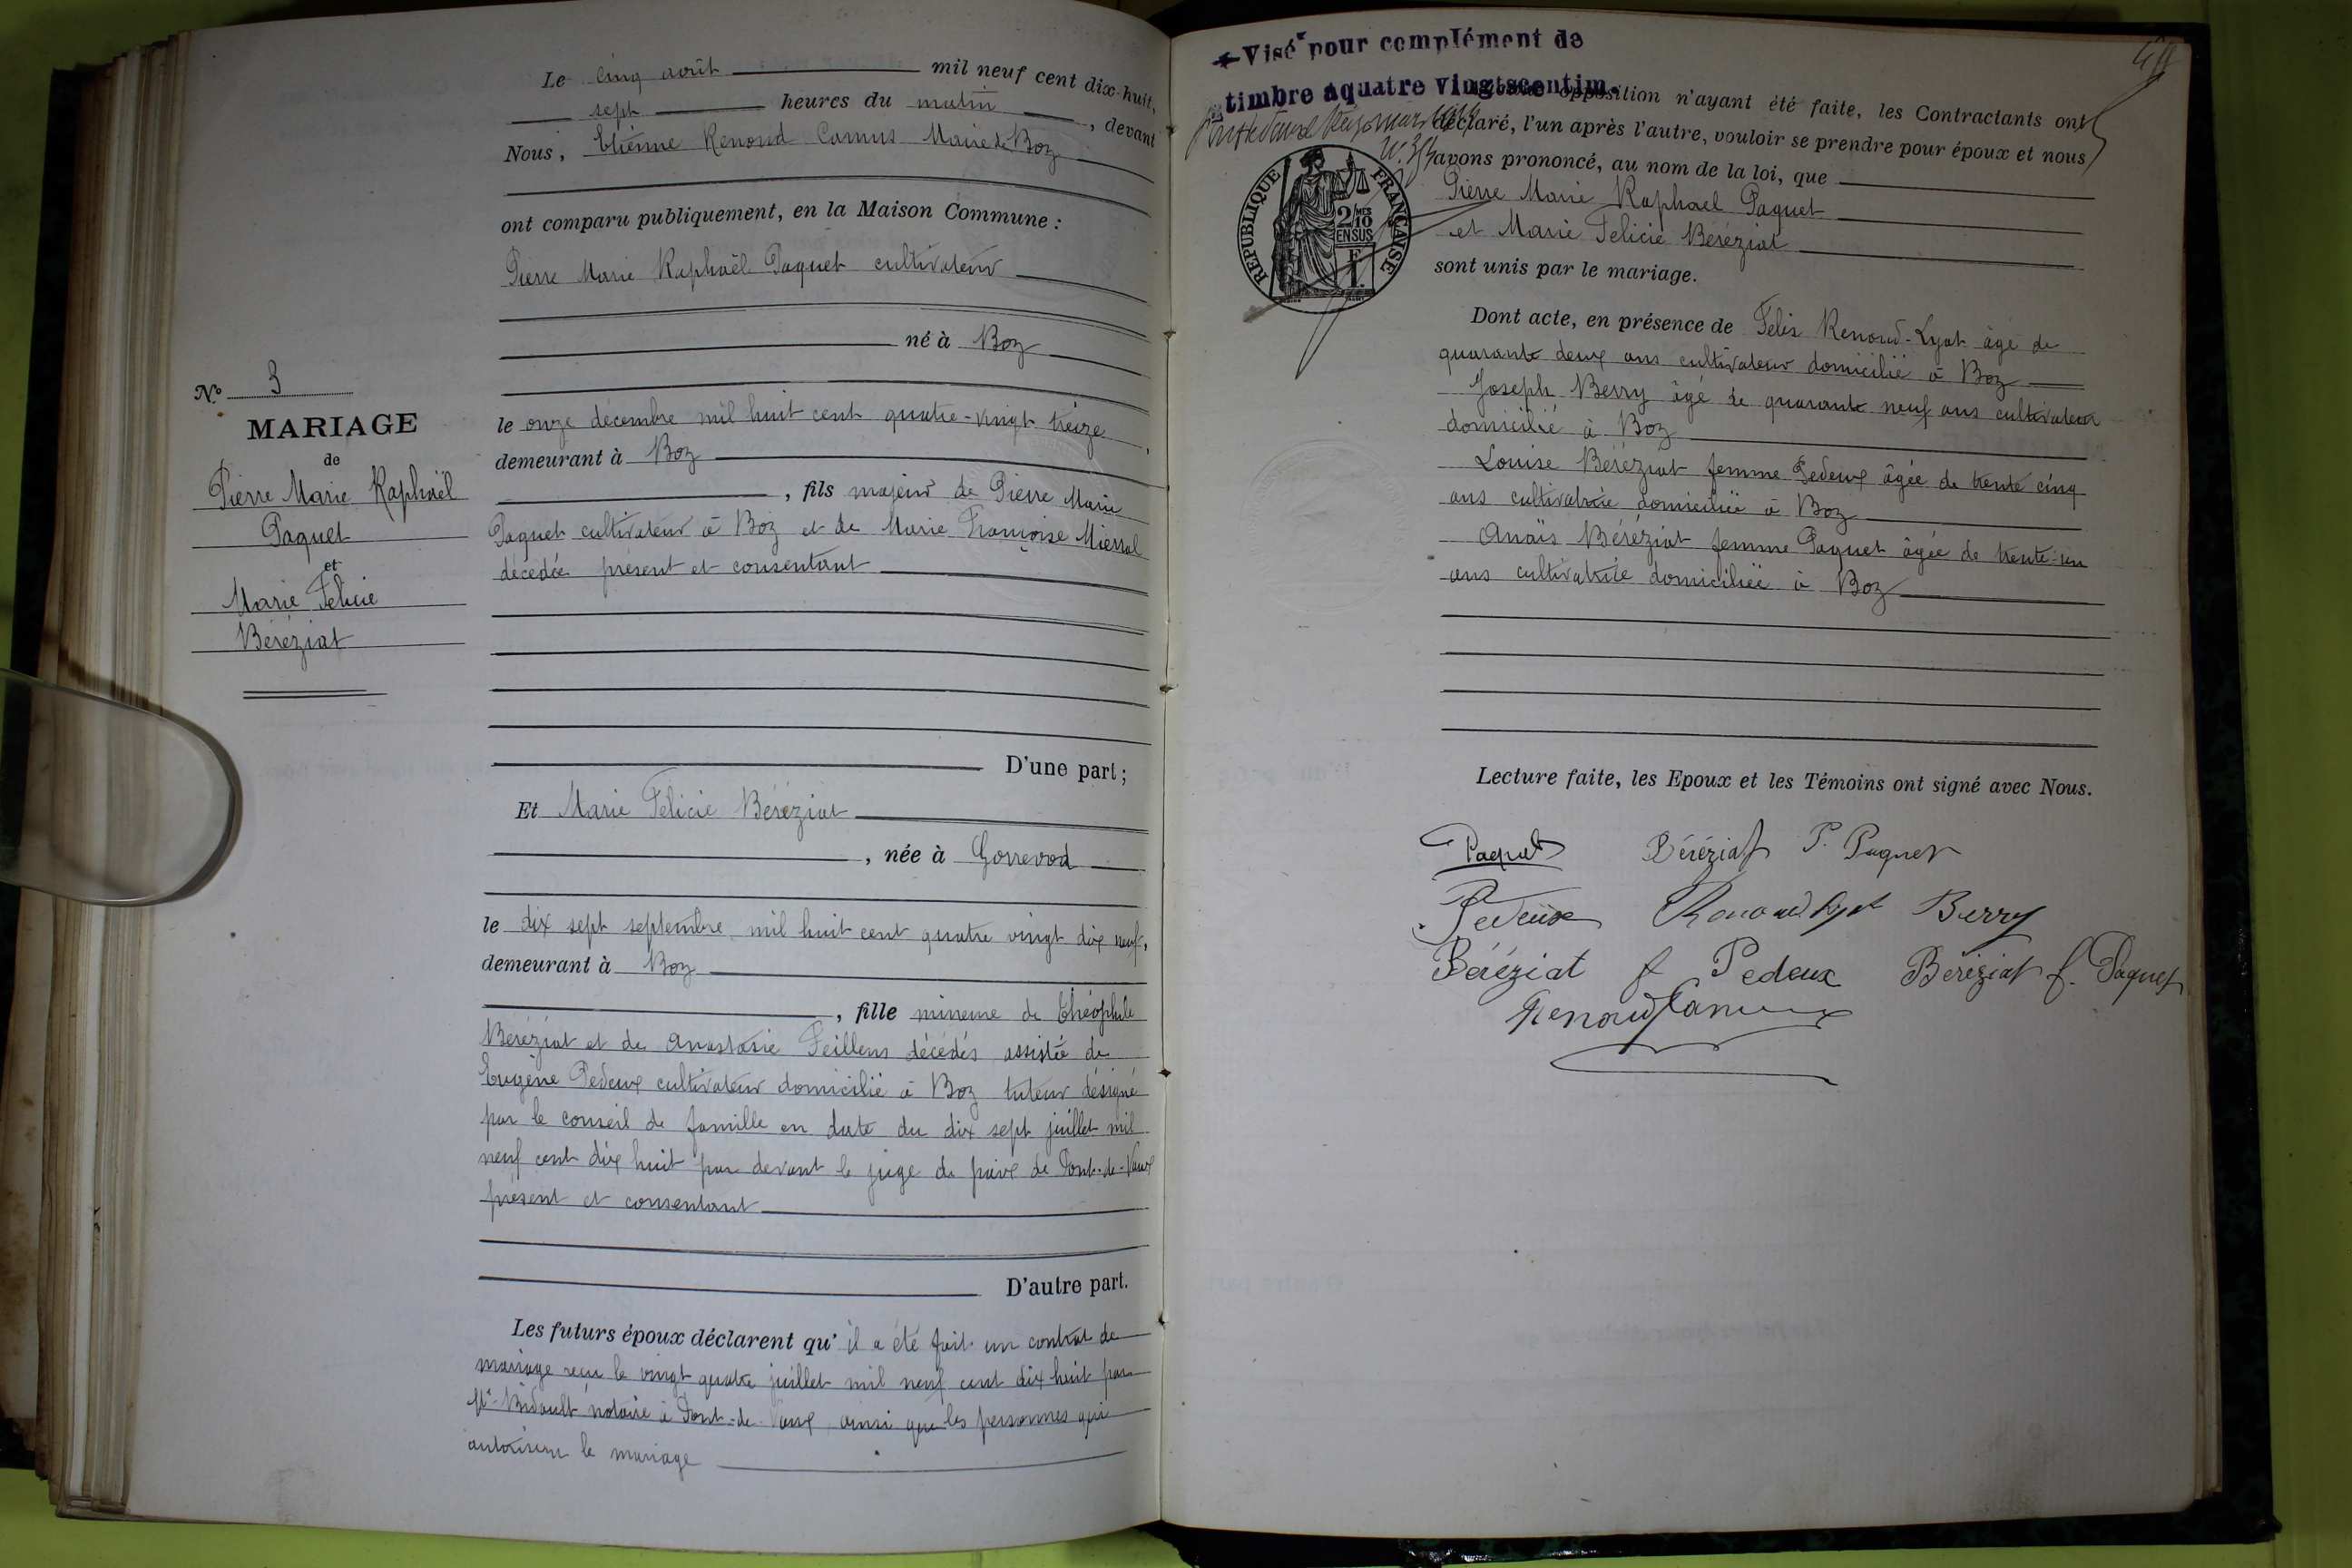 Le cinq août mil neuf cent dix-huit,
sept heures du matin, devant
Nous, Etienne Renoud Camus Maire de Boz
ont comparu publiquement, en la Maison Commune :
Pierre Marie Raphaël Paquet cultivateur
né à Boz
le onze décembre mil huit cent quatre-vingt treize,
demeurant à Boz
, fils majeur de Pierre Marie
Paquet cultivateur à Boz et de Marie Françoise Mierral
décédée présent et consentant
D'une part ;
Et Marie Felicie Béréziat
, née à Gorrevod
le dix sept septembre mil huit cent quatre vingt dix neuf,
demeurant à Boz
, fille mineure de Théophile
Béréziat et de Anastasie Feillens décédés assistée de
Eugène Pedeux cultivateur domicilié à Boz tuteur désigné
par le conseil de famille en date du dix sept juillet mil
neuf cent dix huit par devant le juge de paix de Pont-de-Vaux
présent et consentant
D'autre part.
Les futurs époux déclarent qu' il a été fait un contrat de
mariage reçu le vingt quatre juillet mil neuf cent dix huit par
Me notaire à Pont-de-Vaux ainsi que les personnes qui
autorisent le mariage
No 3
MARIAGE
de
Pierre Marie Raphaël
Paquet
et
Marie Felicie
Béréziat
Visé pour complément de
timbre à quatre vingts centim.
opposition n'ayant été faite, les Contractants ont
déclaré, l'un après l'autre, vouloir se prendre pour époux et nous
avons prononcé, au nom de la loi, que
Pierre Marie Raphael Paquet
et Marie Felicie Béréziat
sont unis par le mariage.
RÉPUBLIQUE FRANÇAISE
2/10MES
EN SUS
1F
Dont acte, en présence de Félix Renoud-Lyat âgé de
quarante deux ans cultivateur domicilié à Boz
Joseph Berry âgé de quarante neuf ans cultivateur
domicilié à Boz
Louise Béréziat femme Pedeux âgée de trente cinq
ans cultivatrice domiciliée à Boz
Anaïs Béréziat femme Paquet âgée de trente-un
ans cultivatrice domiciliée à Boz
Lecture faite, les Epoux et les Témoins ont signé avec Nous.
Paquet Béréziat P. Paquet
Pedeux Renoud Lyat Berry
Béréziat f Pedeux Béréziat f. Paquet
Renoud Camus